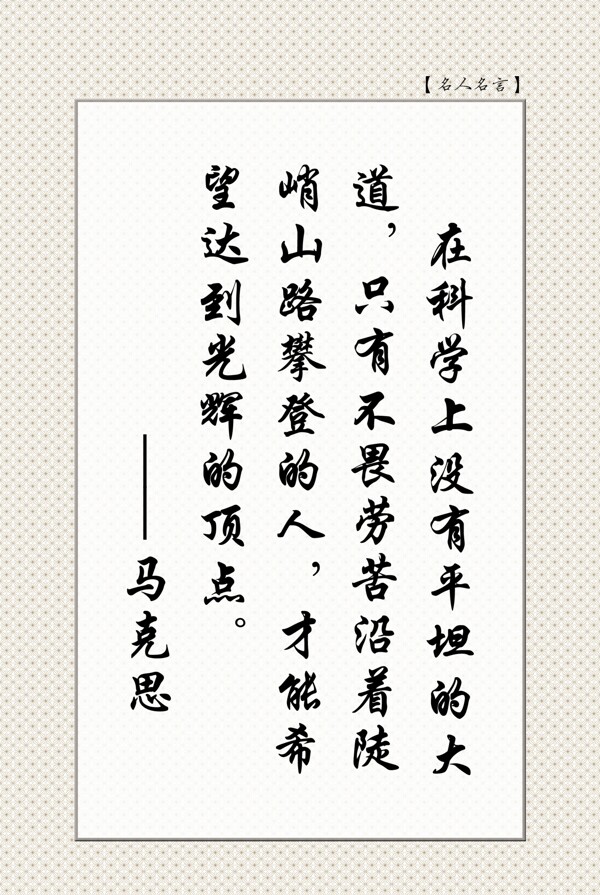 【名人名言】
在科学上没有平坦的大
道，只有不畏劳苦沿着陡
峭山路攀登的人，才能希
望达到光辉的顶点。
——马克思